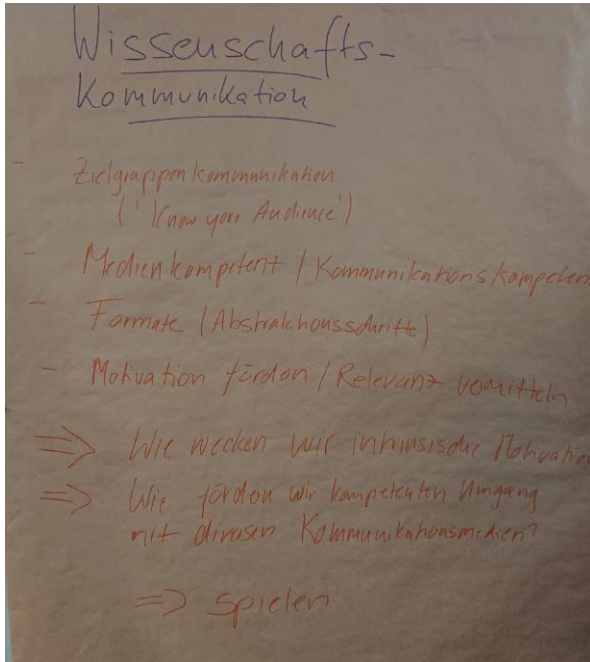 Wissenschafts-
Kommunikation
- Zielgruppenkommunikation
('Know your Audience')
- Medienkompetent / Kommunikationskompeten
- Formate (Abstraktionsschritte)
- Motivation fördern / Relevanz vermitteln
=> Wie wecken wir intrinsische Motivatio
=> Wie fördern wir kompetenten Umgang
mit diversen Kommunikationsmedien?
=> spielen